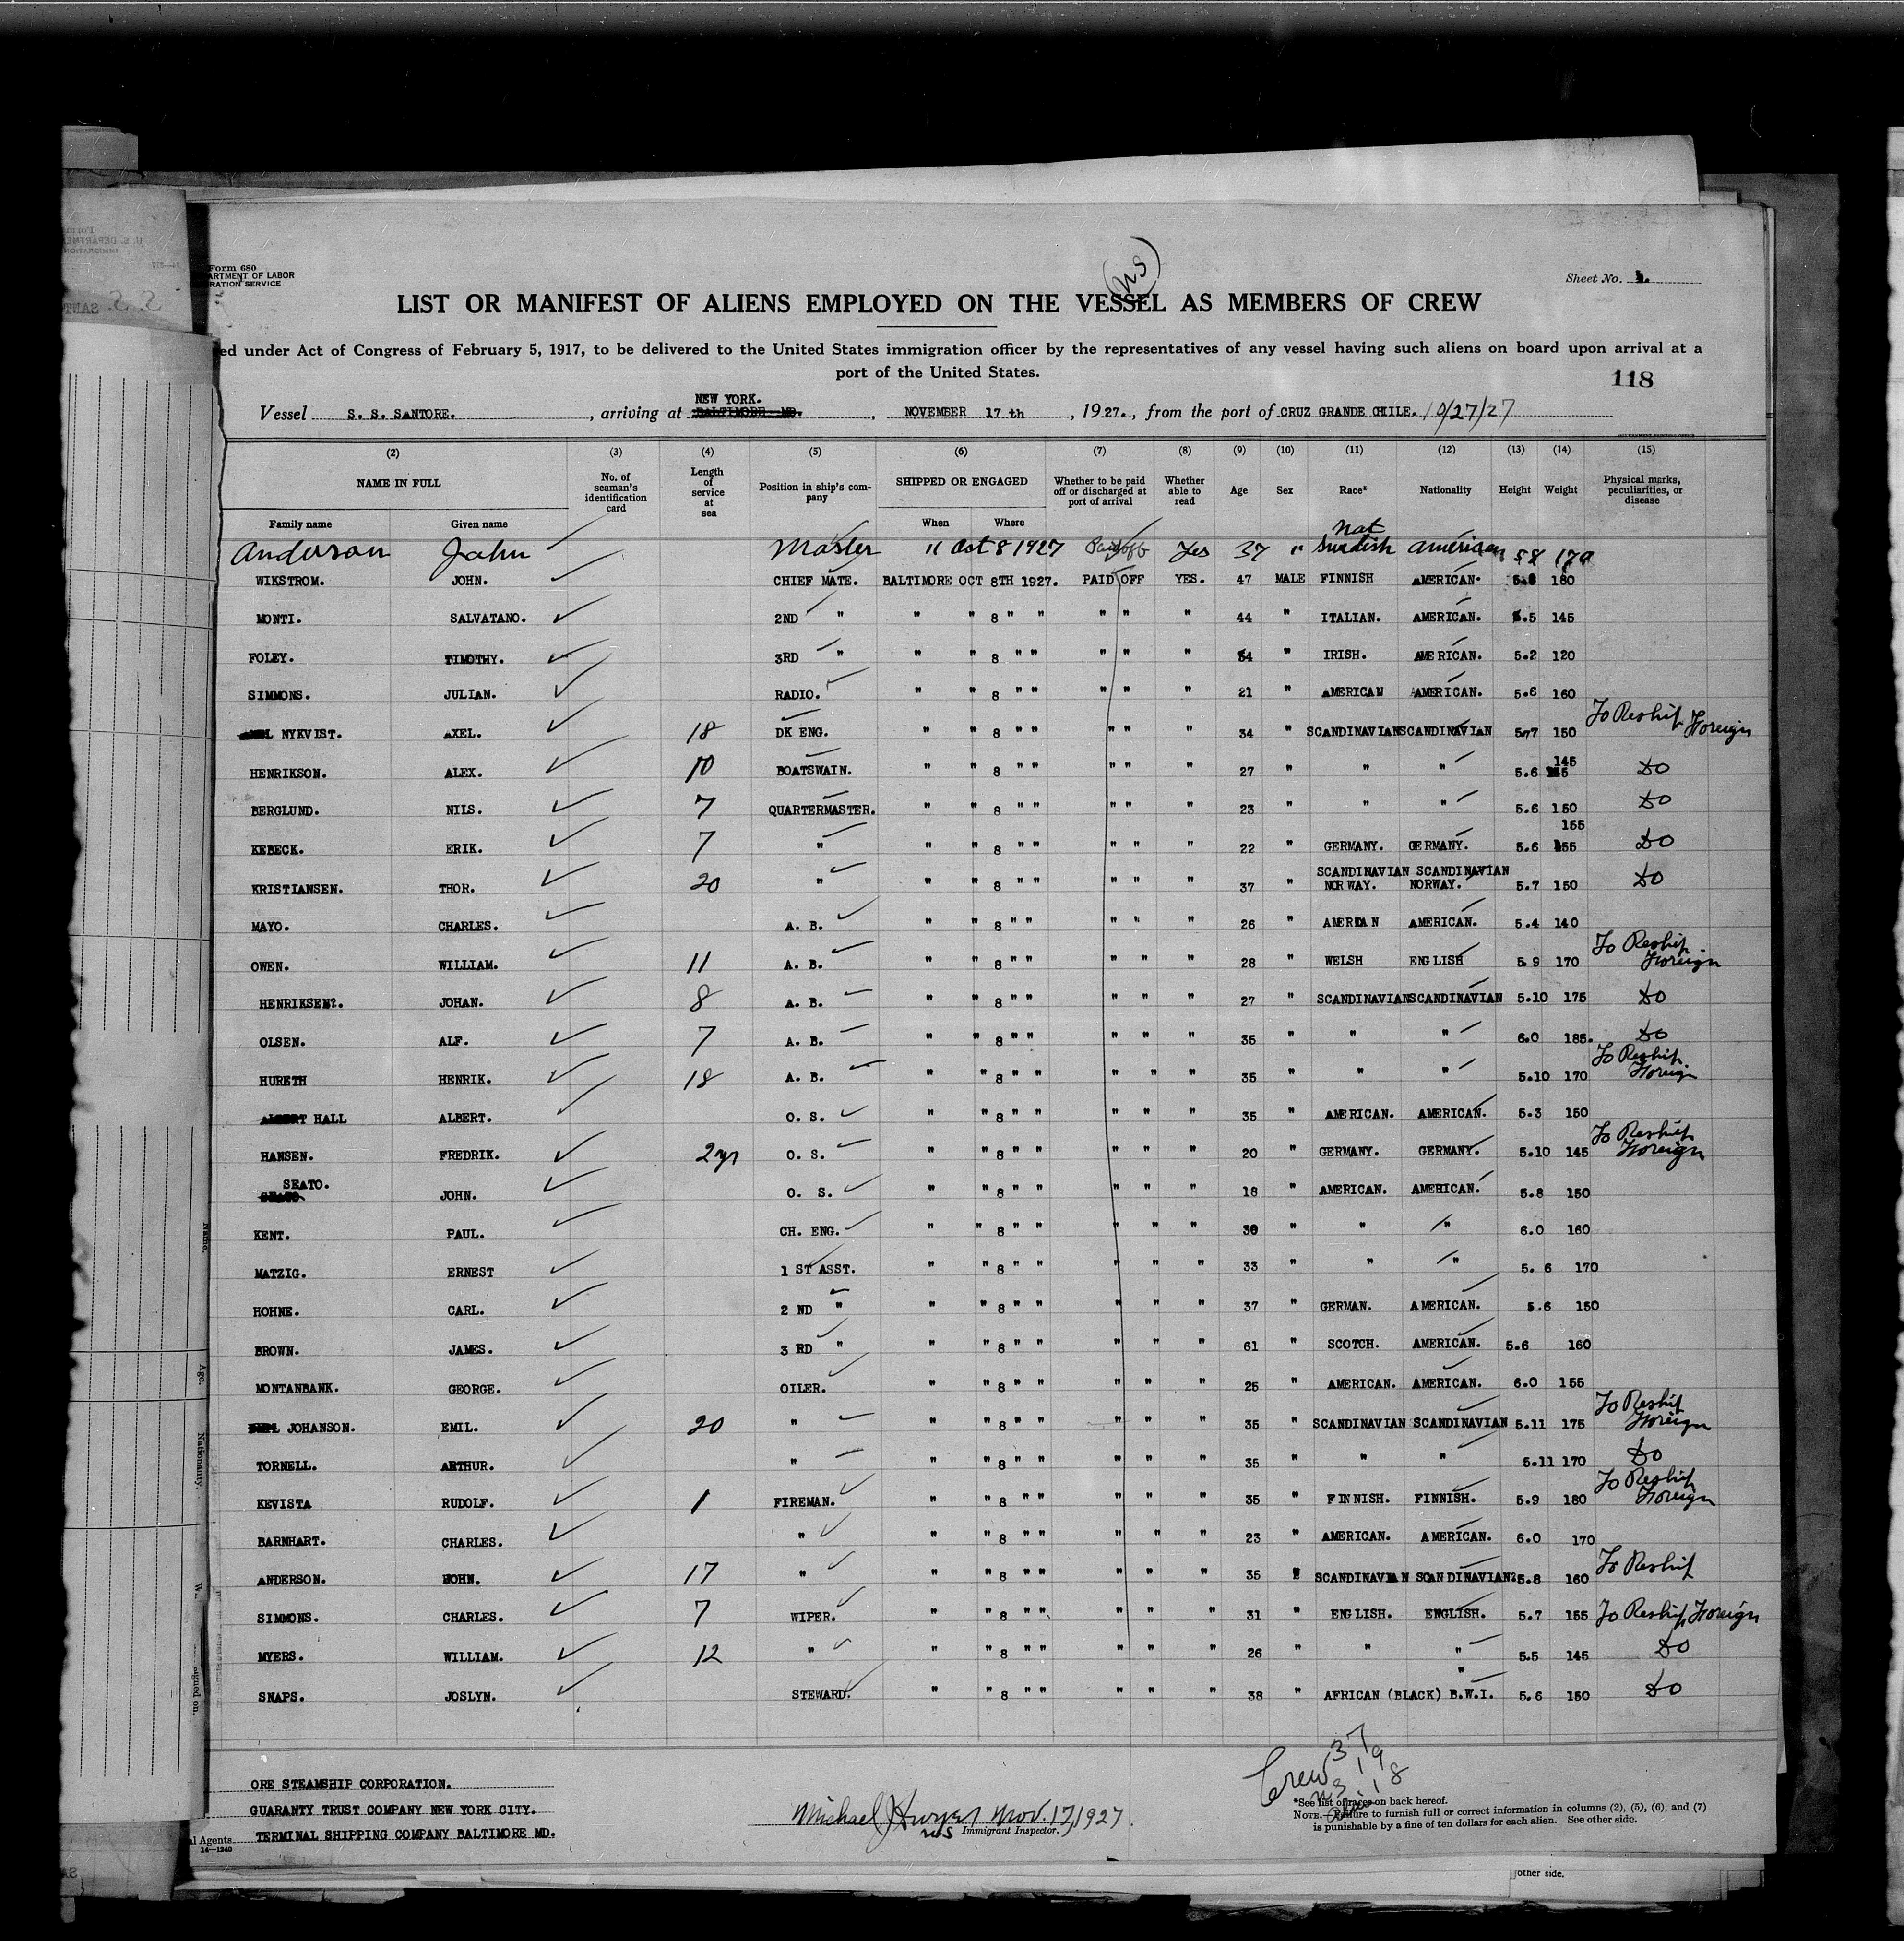 Form 680
ARTMENT OF LABOR
RATION SERVICE
(NS)
Sheet No. 1.
LIST OR MANIFEST OF ALIENS EMPLOYED ON THE VESSEL AS MEMBERS OF CREW
ed under Act of Congress of February 5, 1917, to be delivered to the United States immigration officer by the representatives of any vessel having such aliens on board upon arrival at a
port of the United States.
118
NEW YORK.
Vessel S. S. SANTORE. , arriving at BALTIMORE MD. , NOVEMBER 17 th , 1927. , from the port of CRUZ GRANDE CHILE. 10/27/27
(2) (3) (4) (5) (6) (7) (8) (9) (10) (11) (12) (13) (14) (15)
NAME IN FULL No. of seaman's identification card Length of service at sea Position in ship's company SHIPPED OR ENGAGED Whether to be paid off or discharged at port of arrival Whether able to read Age Sex Race* Nationality Height Weight Physical marks, peculiarities, or disease
Family name Given name When Where
Anderson John Master " Oct 8 1927 Paid off Yes 37 " Nat Swedish American 58 170
WIKSTROM. JOHN. CHIEF MATE. BALTIMORE OCT 8TH 1927. PAID OFF YES. 47 MALE FINNISH AMERICAN. 5.8 180
MONTI. SALVATANO. 2ND " " " 8 " " " " " 44 " ITALIAN. AMERICAN. 5.5 145
FOLEY. TIMOTHY. 3RD " " " 8 " " " " " 54 " IRISH. AMERICAN. 5.2 120
SIMMONS. JULIAN. RADIO. " " 8 " " " " " 21 " AMERICAN AMERICAN. 5.6 160
NYKVIST. AXEL. 18 DK ENG. " " 8 " " " " " 34 " SCANDINAVIAN SCANDINAVIAN 5.7 150 To Reship Foreign
HENRIKSON. ALEX. 10 BOATSWAIN. " " 8 " " " " " 27 " " " 5.6 145 Do
BERGLUND. NILS. 7 QUARTERMASTER. " " 8 " " " " " 23 " " " 5.6 150 Do
KEBECK. ERIK. 7 " " " 8 " " " " " 22 " GERMANY. GERMANY. 5.6 155 155 Do
KRISTIANSEN. THOR. 20 " " " 8 " " " " " 37 " SCANDINAVIAN NORWAY. SCANDINAVIAN NORWAY. 5.7 150 Do
MAYO. CHARLES. A. B. " " 8 " " " " " 26 " AMERIAN AMERICAN. 5.4 140
OWEN. WILLIAM. 11 A. B. " " 8 " " " " " 28 " WELSH ENGLISH 5.9 170 To Reship Foreign
HENRIKSEN?. JOHAN. 8 A. B. " " 8 " " " " " 27 " SCANDINAVIAN SCANDINAVIAN 5.10 175 Do
OLSEN. ALF. 7 A. B. " " 8 " " " " " 35 " " " 6.0 185. Do
HURETH HENRIK. 18 A. B. " " 8 " " " " " 35 " " " 5.10 170 To Reship Foreign
ALBERT HALL ALBERT. O. S. " " 8 " " " " " 35 " AMERICAN. AMERICAN. 5.3 150
HANSEN. FREDRIK. 2 yr O. S. " " 8 " " " " " 20 " GERMANY. GERMANY. 5.10 145 To Reship Foreign
SEATO. JOHN. O. S. " " 8 " " " " " 18 " AMERICAN. AMERICAN. 5.8 150
KENT. PAUL. CH. ENG. " " 8 " " " " " 30 " " " 6.0 160
MATZIG. ERNEST 1 ST ASST. " " 8 " " " " " 33 " " " 5. 6 170
HOHNE. CARL. 2 ND " " " 8 " " " " " 37 " GERMAN. AMERICAN. 5.6 150
BROWN. JAMES. 3 RD " " " 8 " " " " " 61 " SCOTCH. AMERICAN. 5.6 160
MONTANBANK. GEORGE. OILER. " " 8 " " " " " 25 " AMERICAN. AMERICAN. 6.0 155
JOHANSON. EMIL. 20 " " " 8 " " " " " 35 " SCANDINAVIAN SCANDINAVIAN 5.11 175 To Reship Foreign
TORNELL. ARTHUR. " " " 8 " " " " " 35 " " " 5.11 170 Do
KEVISTA RUDOLF. 1 FIREMAN. " " 8 " " " " " 35 " FINNISH. FINNISH. 5.9 180 To Reship Foreign
BARNHART. CHARLES. " " " 8 " " " " " 23 " AMERICAN. AMERICAN. 6.0 170
ANDERSON. JOHN. 17 " " " 8 " " " " " 35 " SCANDINAVIAN SCANDINAVIAN? 5.8 160 To Reship
SIMMONS. CHARLES. 7 WIPER. " " 8 " " " " " 31 " ENGLISH. ENGLISH. 5.7 155 To Reship Foreign
MYERS. WILLIAM. 12 " " " 8 " " " " " 26 " " " 5.5 145 Do
SNAPS. JOSLYN. STEWARD. " " 8 " " " " " 38 " AFRICAN (BLACK) " B.W.I. 5.6 150 Do
Crew 37
19
18
ORE STEAMSHIP CORPORATION.
GUARANTY TRUST COMPANY NEW YORK CITY.
al Agents TERMINAL SHIPPING COMPANY BALTIMORE MD.
14—1240
Michael Nov. 17, 1927.
Immigrant Inspector.
*See list of races on back hereof.
NOTE.—Failure to furnish full or correct information in columns (2), (5), (6), and (7)
is punishable by a fine of ten dollars for each alien. See other side.
other side.
Name.
Age.
Nationality.